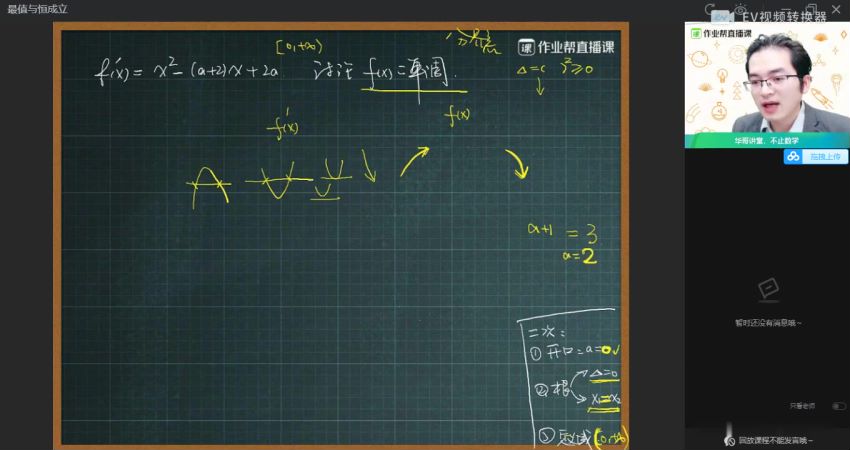 最值与恒成立
EV视频转换器
[0,+∞)
作业帮直播课
作业帮直播课
f'(x) = x²-(a+2)x+2a. 讨论 f(x)=单调.
Δ=( )²≥0
f'(x)
f(x)
华哥讲堂，不止数学
拖拽上传
a+1 = 3
a=2
二次：
① 开口=a=0√
② 根
Δ=0
x₁=x₂
③ 定义域(0,+∞)
暂时还没有消息哦~
只看老师
回放课程不能发言哦~